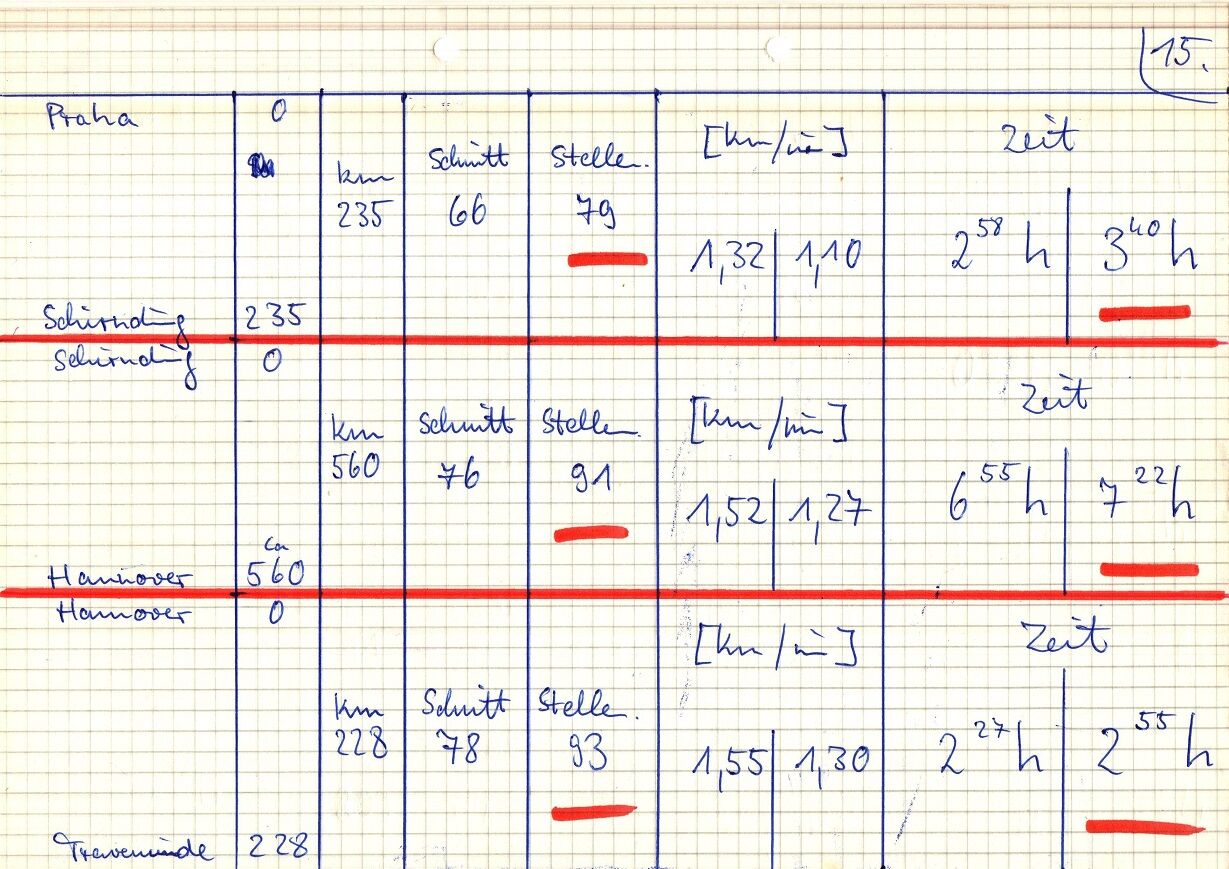 15.
Praha 0
[km/min] Zeit
km Schnitt Stellen.
235 66 79
1,32 1,10 2 58 h 3 40 h
Schirnding 235
Schirnding 0
Zeit
km Schnitt Stellen. [km/min]
560 76 91
1,52 1,27 6 55 h 7 22 h
ca
Hannover 560
Hannover 0
[km/min] Zeit
km Schnitt Stellen.
228 78 93
1,55 1,30 2 27 h 2 55 h
Travemünde 228